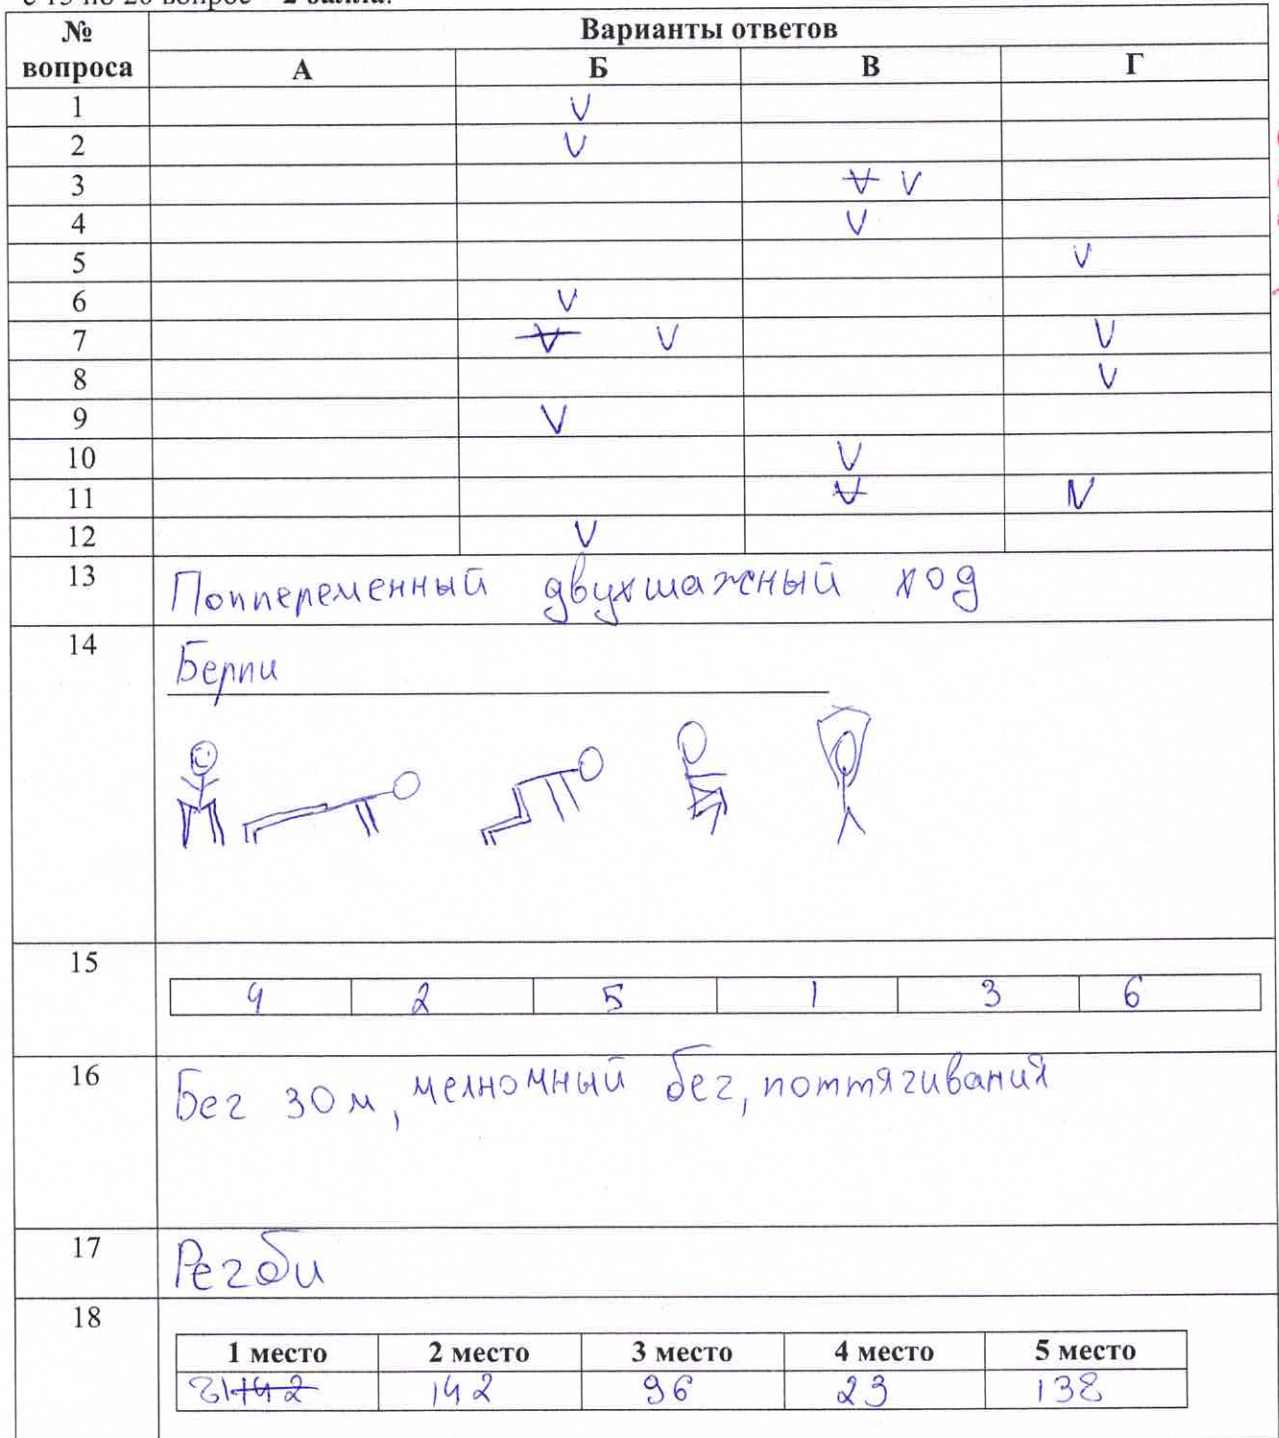 с 13 по 20 вопрос – 2 балла.
№ вопроса Варианты ответов
А Б В Г
1 V
2 V
3 V V
4 V
5 V
6 V
7 V V V
8 V
9 V
10 V
11 V V
12 V
13 Поппеременный двухшажный ход
14 Берпи
15 4 2 5 1 3 6
16 Бег 30 м, челночный бег, поттягивания
17 Регби
18
1 место 2 место 3 место 4 место 5 место
142 96 23 138